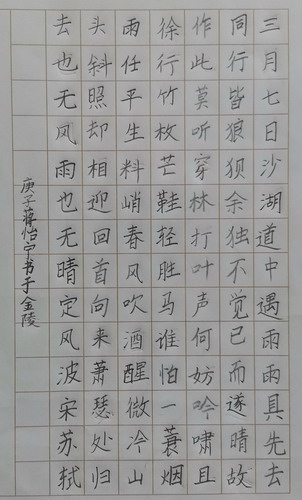 三月七日沙湖道中遇雨雨具先去
同行皆狼狈余独不觉已而遂晴故
作此莫听穿林打叶声何妨吟啸且
徐行竹杖芒鞋轻胜马谁怕一蓑烟
雨任平生料峭春风吹酒醒微冷山
头斜照却相迎回首向来萧瑟处归
去也无风雨也无晴定风波宋苏轼
庚子蒋怡宁书于金陵